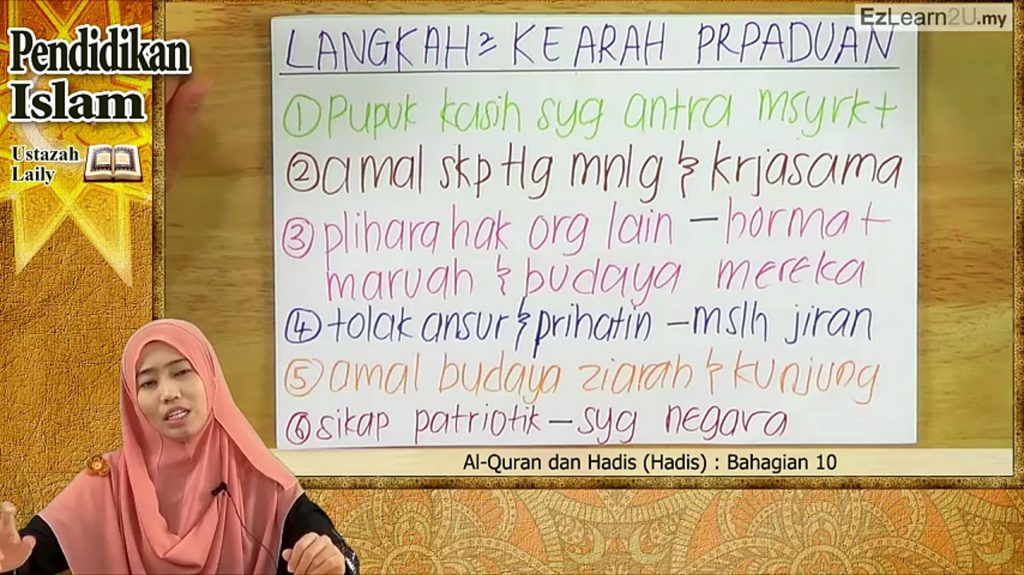 EzLearn2U.my
Pendidikan
Islam
Ustazah
Laily
LANGKAH² KE ARAH PRPADUAN
① Pupuk kasih syg antra msyrkt
② amal skp tlg mnlg & krjasama
③ pliharaghak org lain – hormat
maruah & budaya mereka
④ tolak ansur & prihatin – mslh jiran
⑤ amal budaya ziarah & kunjung
⑥ sikap patriotik – syg negara
Al-Quran dan Hadis (Hadis) : Bahagian 10